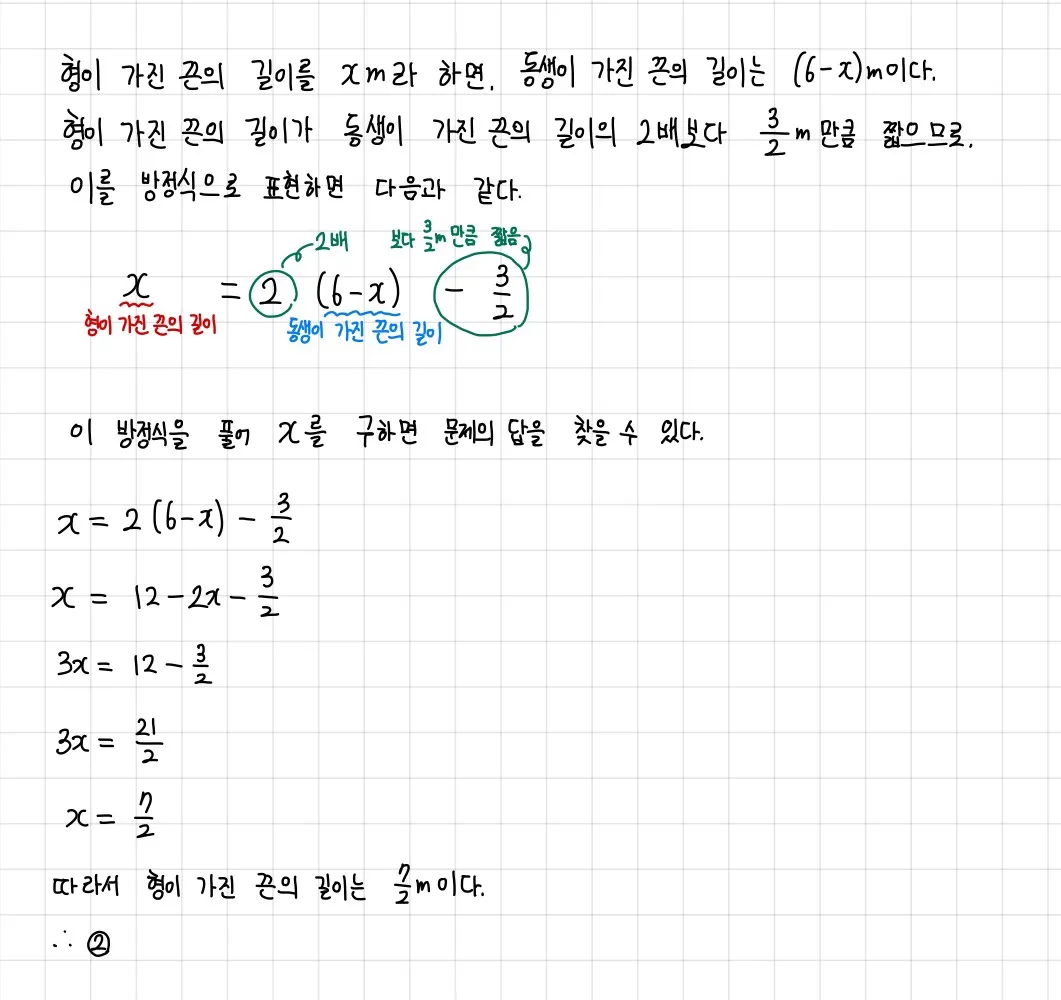 형이 가진 끈의 길이를 x m라 하면, 동생이 가진 끈의 길이는 (6-x)m이다.
형이 가진 끈의 길이가 동생이 가진 끈의 길이의 2배보다 3/2 m 만큼 짧으므로,
이를 방정식으로 표현하면 다음과 같다.
2배 보다 3/2 m 만큼 짧음
x = 2 (6-x) - 3/2
형이 가진 끈의 길이 동생이 가진 끈의 길이
이 방정식을 풀어 x를 구하면 문제의 답을 찾을 수 있다.
x = 2 (6-x) - 3/2
x = 12 - 2x - 3/2
3x = 12 - 3/2
3x = 21/2
x = 7/2
따라서 형이 가진 끈의 길이는 7/2 m 이다.
∴ ②